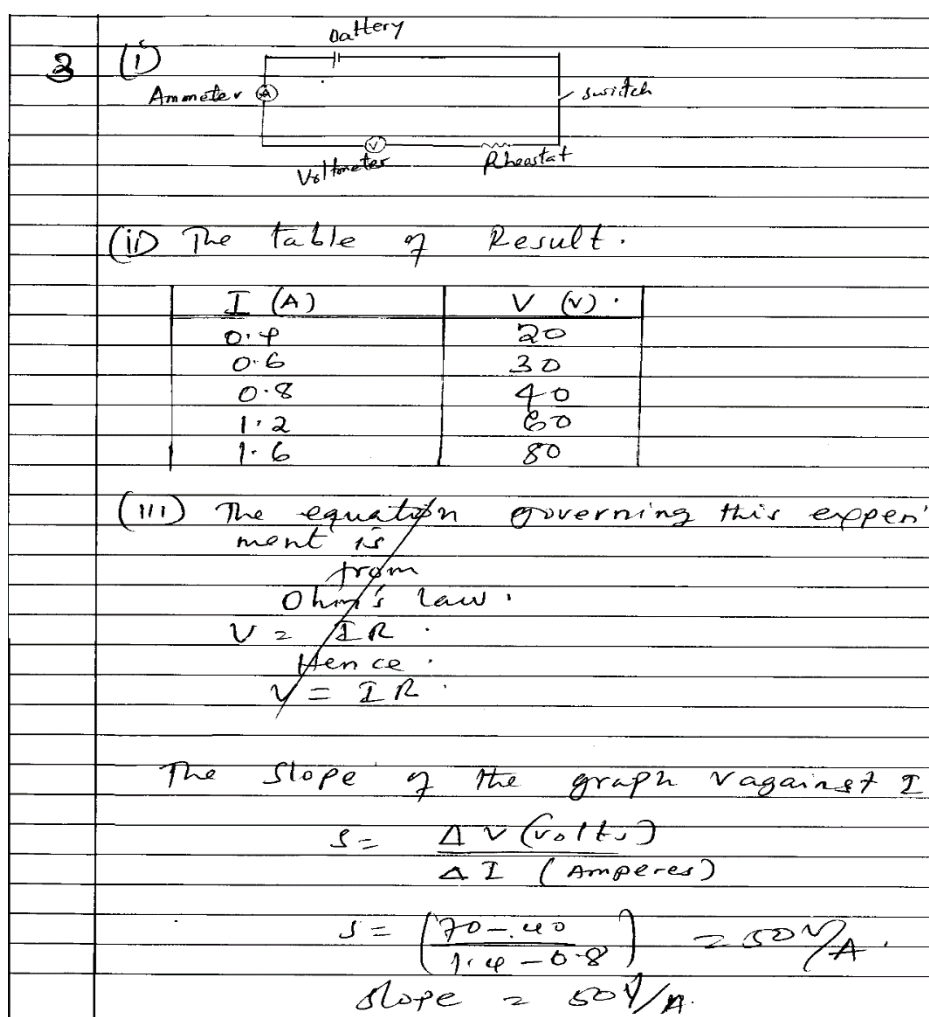 Battery
3 (i)
Ammeter A switch
V
Voltmeter Rheostat
(ii) The table of Result.
I (A) V (v).
0.4 20
0.6 30
0.8 40
1.2 60
1.6 80
(iii) The equation governing this experi
ment is
from
Ohm's Law.
V = IR.
Hence.
V = IR.
The Slope of the graph V against I
S = Δ V (volts)
Δ I (Amperes)
S = (70 - 40
1.4 - 0.8) = 50 V/A.
Slope = 50 V/A.